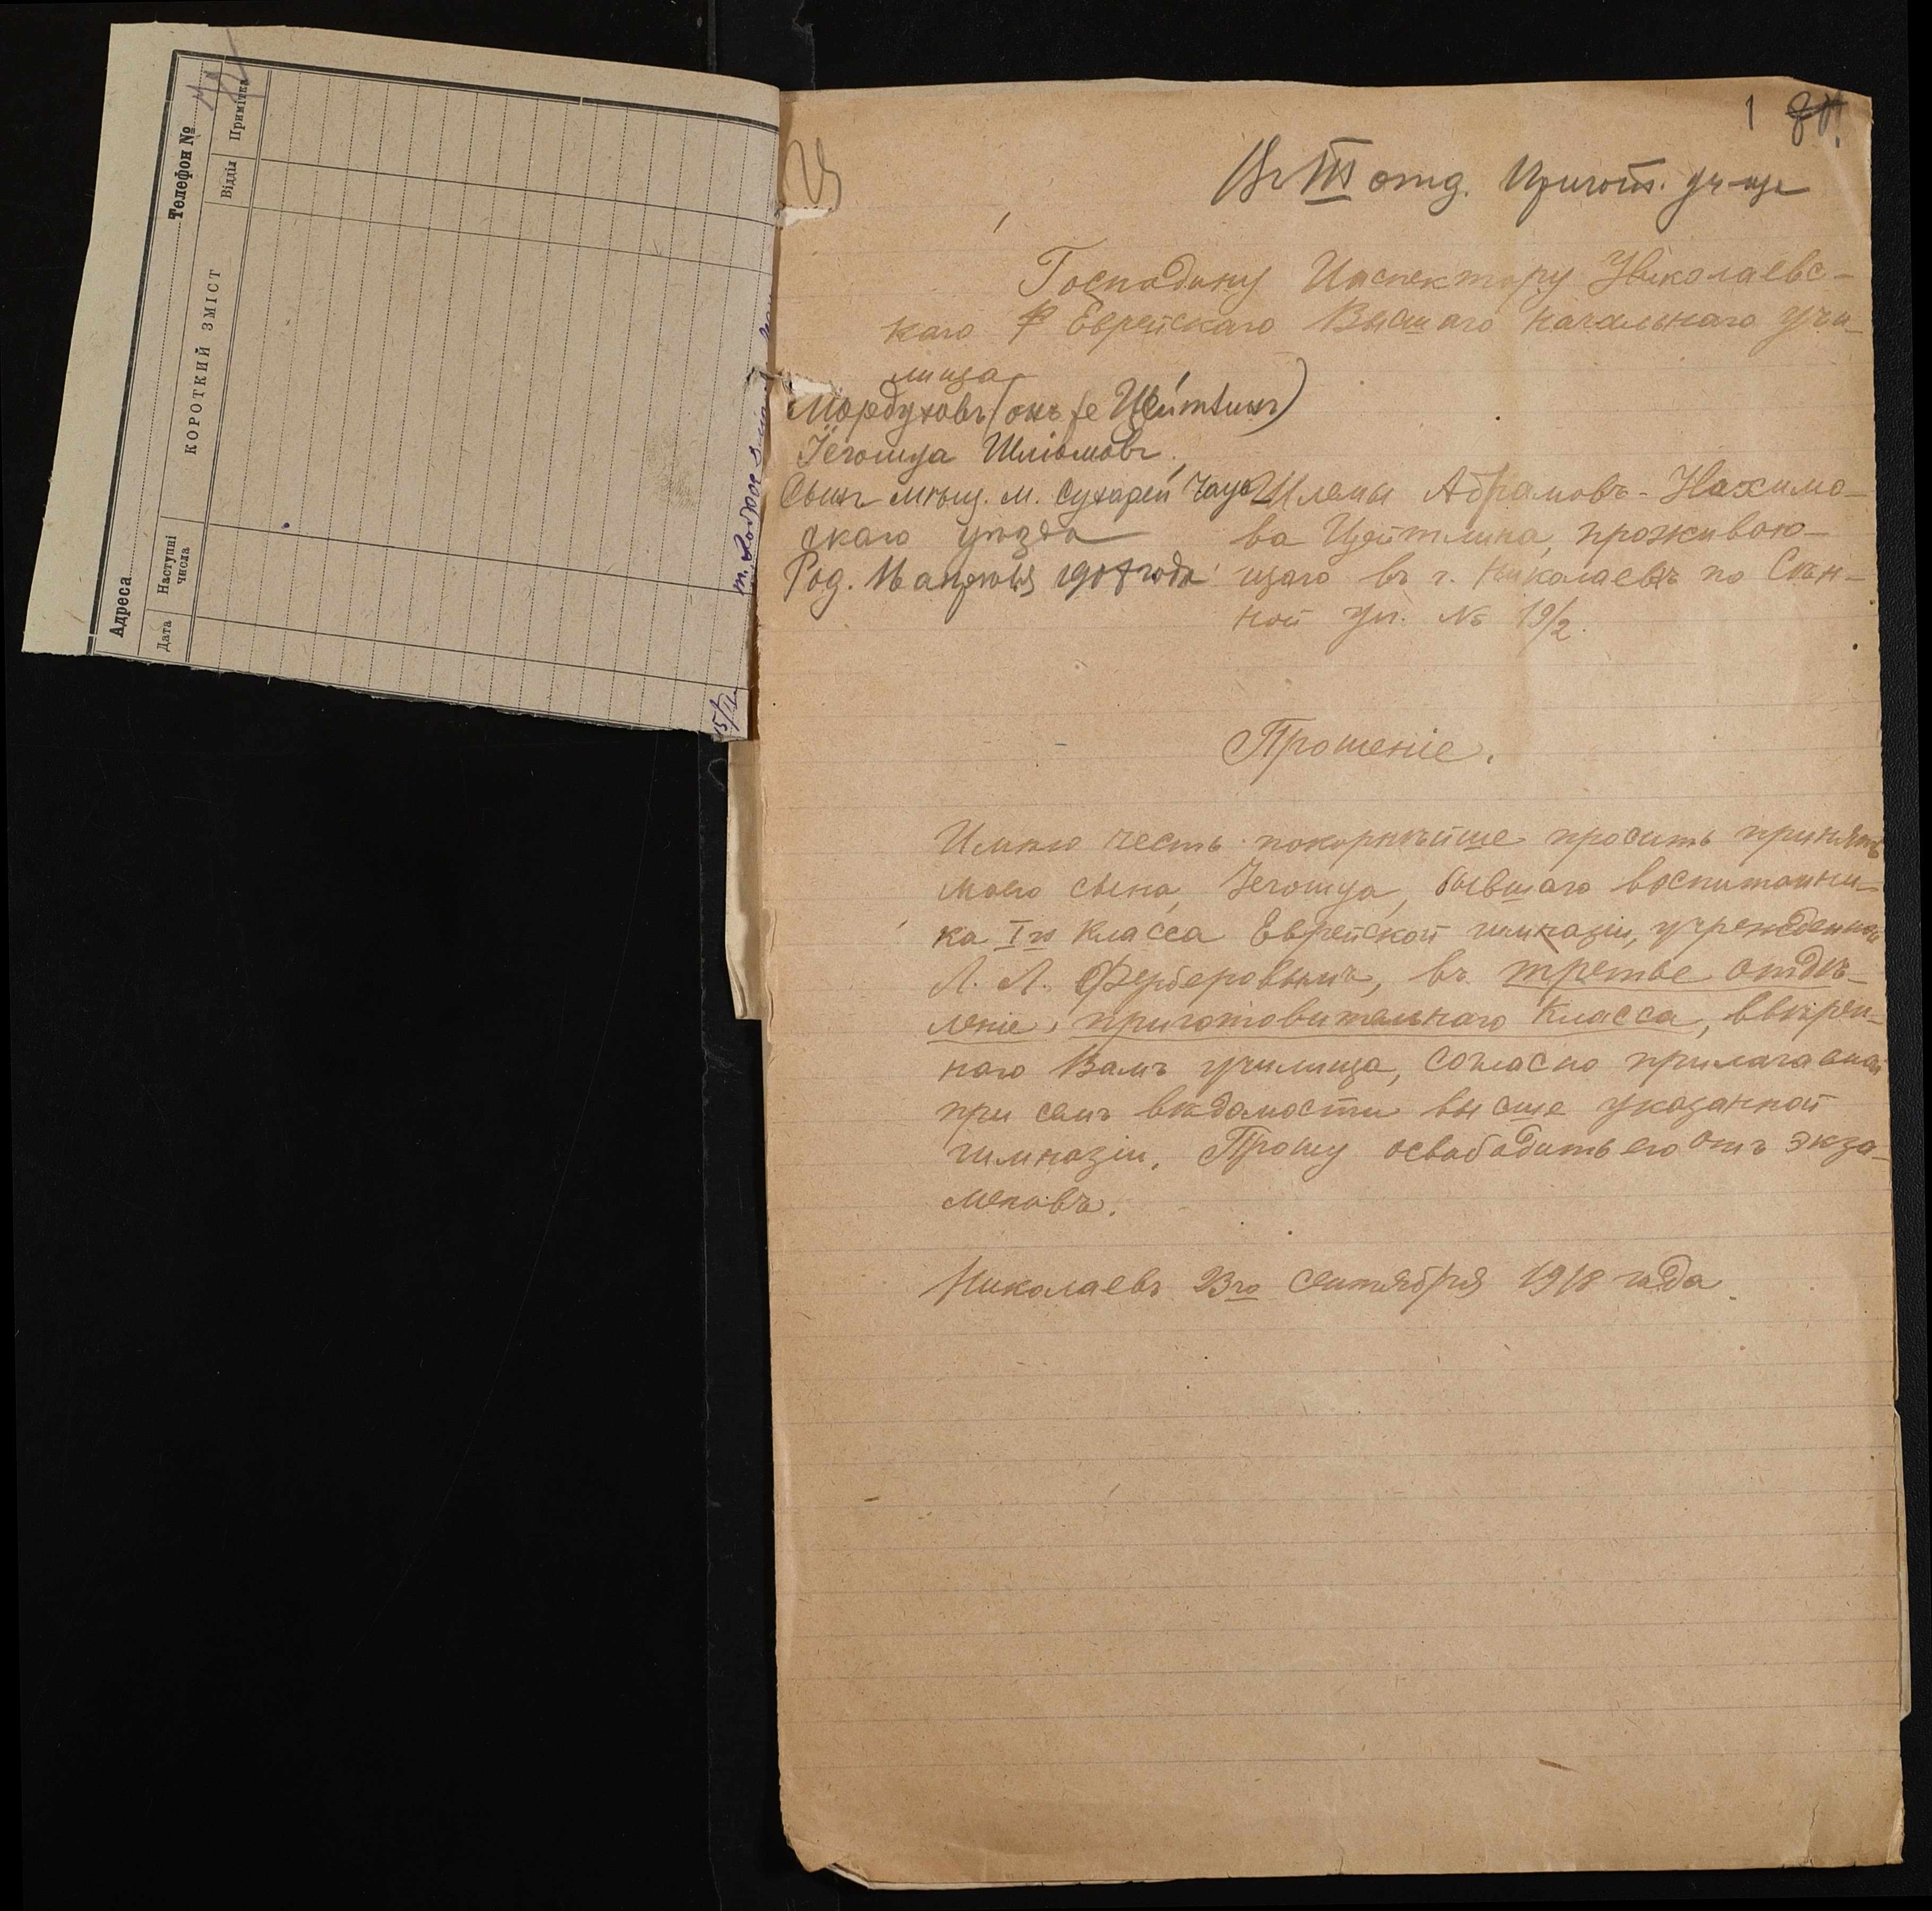 Адреса
Телефон №
Дата
Наступні числа
КОРОТКИЙ ЗМІСТ
Відділ
Примітка
15/II
1
Въ III отд. Пригот. уч-ща
Господину Инспектору Николаевс-
каго Еврейскаго Высшаго Начальнаго Учи-
лища
Мордуховъ (онъ же Цейтлинъ)
Іегошуа Шліомовъ.
Сынъ мѣщ. м. Сухарей Чаус
скаго уѣзда
Род. апрѣля 1907 года
Шлемы Абрамовъ-Нахимо-
ва Цейтлина, проживаю-
щаго въ г. Николаевѣ по Сѣн-
ной ул. № 19/2.
Прошеніе.
Имѣю честь покорнѣйше просить принять
моего сына, Іегошуа, бывшаго воспитанни-
ка Iго Класса Еврейской гимназіи, учрежденной
Л. Л. Ферберовымъ, въ третье отдѣ-
леніе, приготовительнаго Класса, ввѣрен-
наго Вамъ училища, согласно прилагаемой
при семъ вѣдомости высше указанной
гимназіи. Прошу освабадить его отъ экза-
меновъ.
Николаевъ 23го Сентября 1918 года.